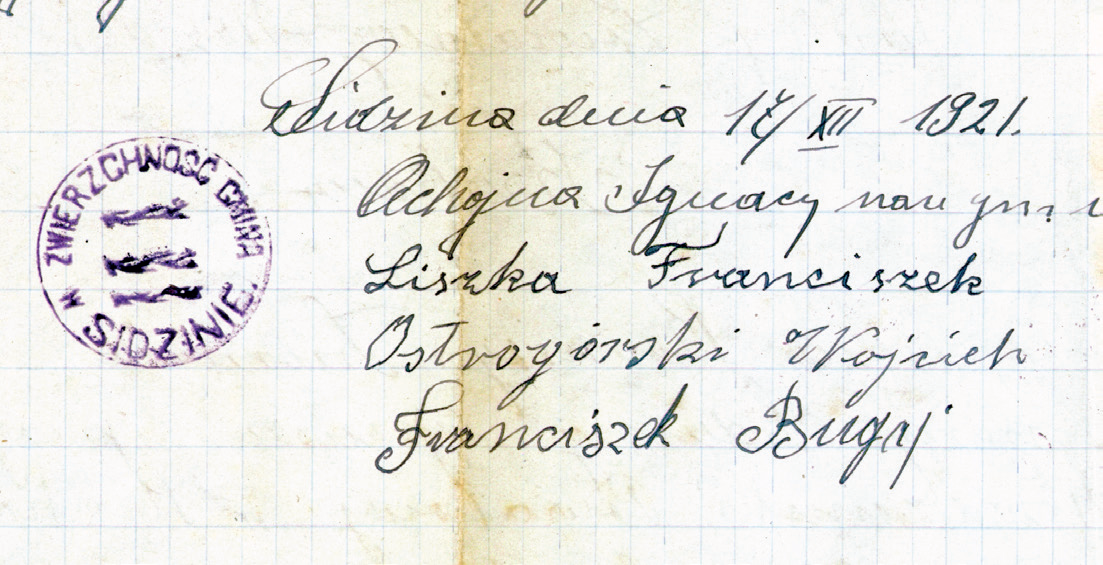 Sidzina dnia 17/XII 1921.
Ochojna Ignacy
Liszka Franciszek
Ostrogórski Wojciech
Franciszek Bugaj
ZWIERZCHNOŚĆ GMINNA
W SIDZINIE.